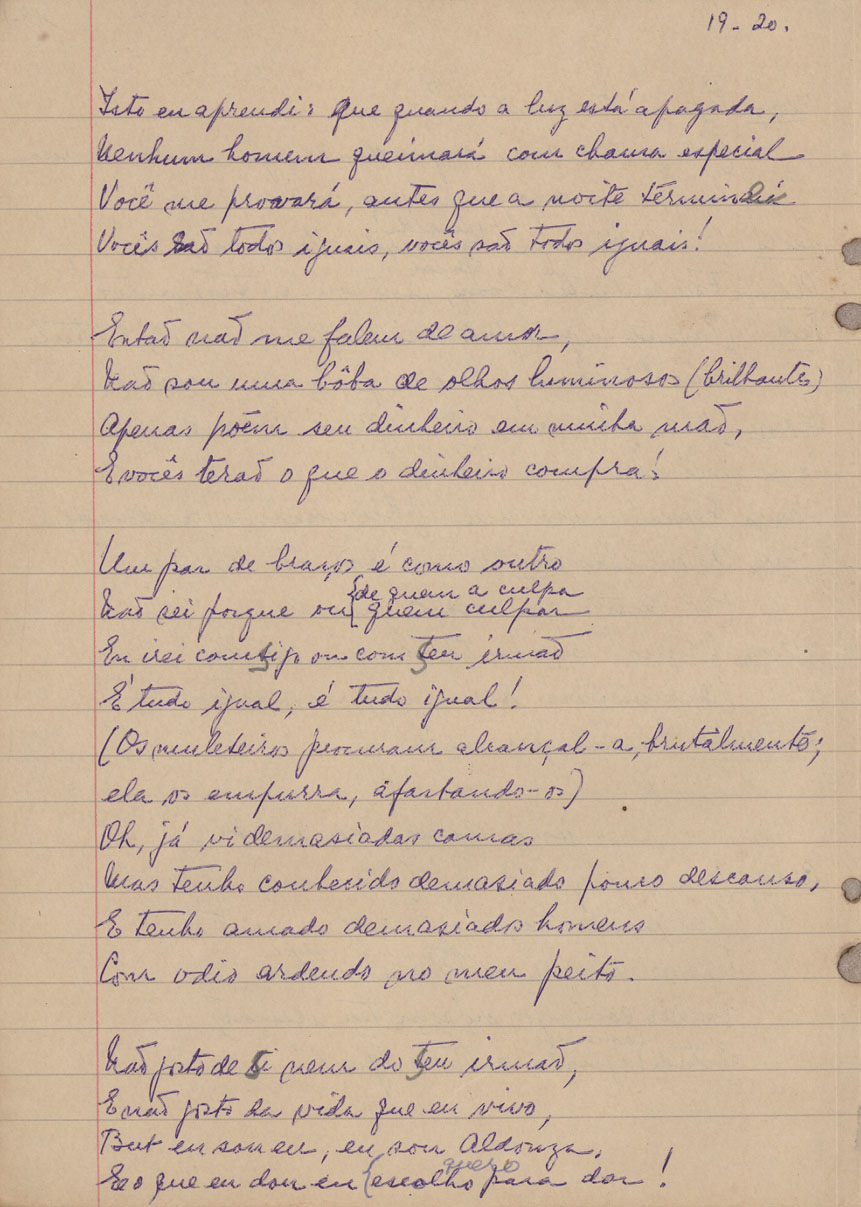 19-20.
Isto eu aprendi: que quando a luz está apagada,
Nenhum homem queimará com chama especial
Você me provará, antes que a noite termine
Vocês são todos iguais, vocês são todos iguais!
Então não me falem de amor,
Não sou uma bôba de olhos luminosos (brilhantes)
Apenas põem seu dinheiro em minha mão,
E vocês terão o que o dinheiro compra!
Um par de braços é como outro
{de quem a culpa
Não sei porque ou {quem culpar
Eu irei comtigo ou com teu irmão
É tudo igual, é tudo igual!
(Os muleteiros procuram alcançal-a, brutalmente;
ela os empurra, afastando-os)
Oh, já vi demasiadas camas
Mas tenho conhecido demasiado pouco descanso,
E tenho amado demasiados homens
Com odio ardendo no meu peito.
Não gosto de ti nem do teu irmão,
E não gosto da vida que eu vivo,
But eu sou eu, eu sou Aldonza,
quero
E o que eu dou eu {escolho para dar!